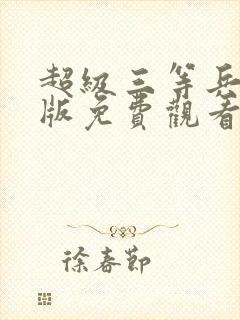 超級三等兵
版免費觀看
徐春節